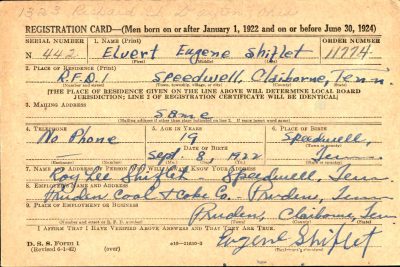 REGISTRATION CARD—(Men born on or after January 1, 1922 and on or before June 30, 1924)
SERIAL NUMBER 1. NAME (Print) ORDER NUMBER
N 442 Elvert Eugene Shiflet 11774
(First) (Middle) (Last)
2. PLACE OF RESIDENCE (Print)
R.F.D. 1 Speedwell, Claiborne, Tenn
(Number and street) (Town, township, village, or city) (County) (State)
[THE PLACE OF RESIDENCE GIVEN ON THE LINE ABOVE WILL DETERMINE LOCAL BOARD
JURISDICTION; LINE 2 OF REGISTRATION CERTIFICATE WILL BE IDENTICAL]
3. MAILING ADDRESS
Same
[Mailing address if other than place indicated on line 2. If same insert word same]
4. TELEPHONE 5. AGE IN YEARS 6. PLACE OF BIRTH
No Phone 19 Speedwell,
DATE OF BIRTH
Sept. 8, 1922 Tenn.
7. NAME AND ADDRESS OF PERSON WHO WILL ALWAYS KNOW YOUR ADDRESS
Roy Lee Shiflet - Speedwell, Tenn
8. EMPLOYER'S NAME AND ADDRESS
Pruden Coal & Coke Co. - Pruden, Tenn
9. PLACE OF EMPLOYMENT OR BUSINESS
Pruden, Claiborne, Tenn
I AFFIRM THAT I HAVE VERIFIED ABOVE ANSWERS AND THAT THEY ARE TRUE.
D. S. S. Form 1
(Revised 6-1-42) (over) Eugene Shiflet